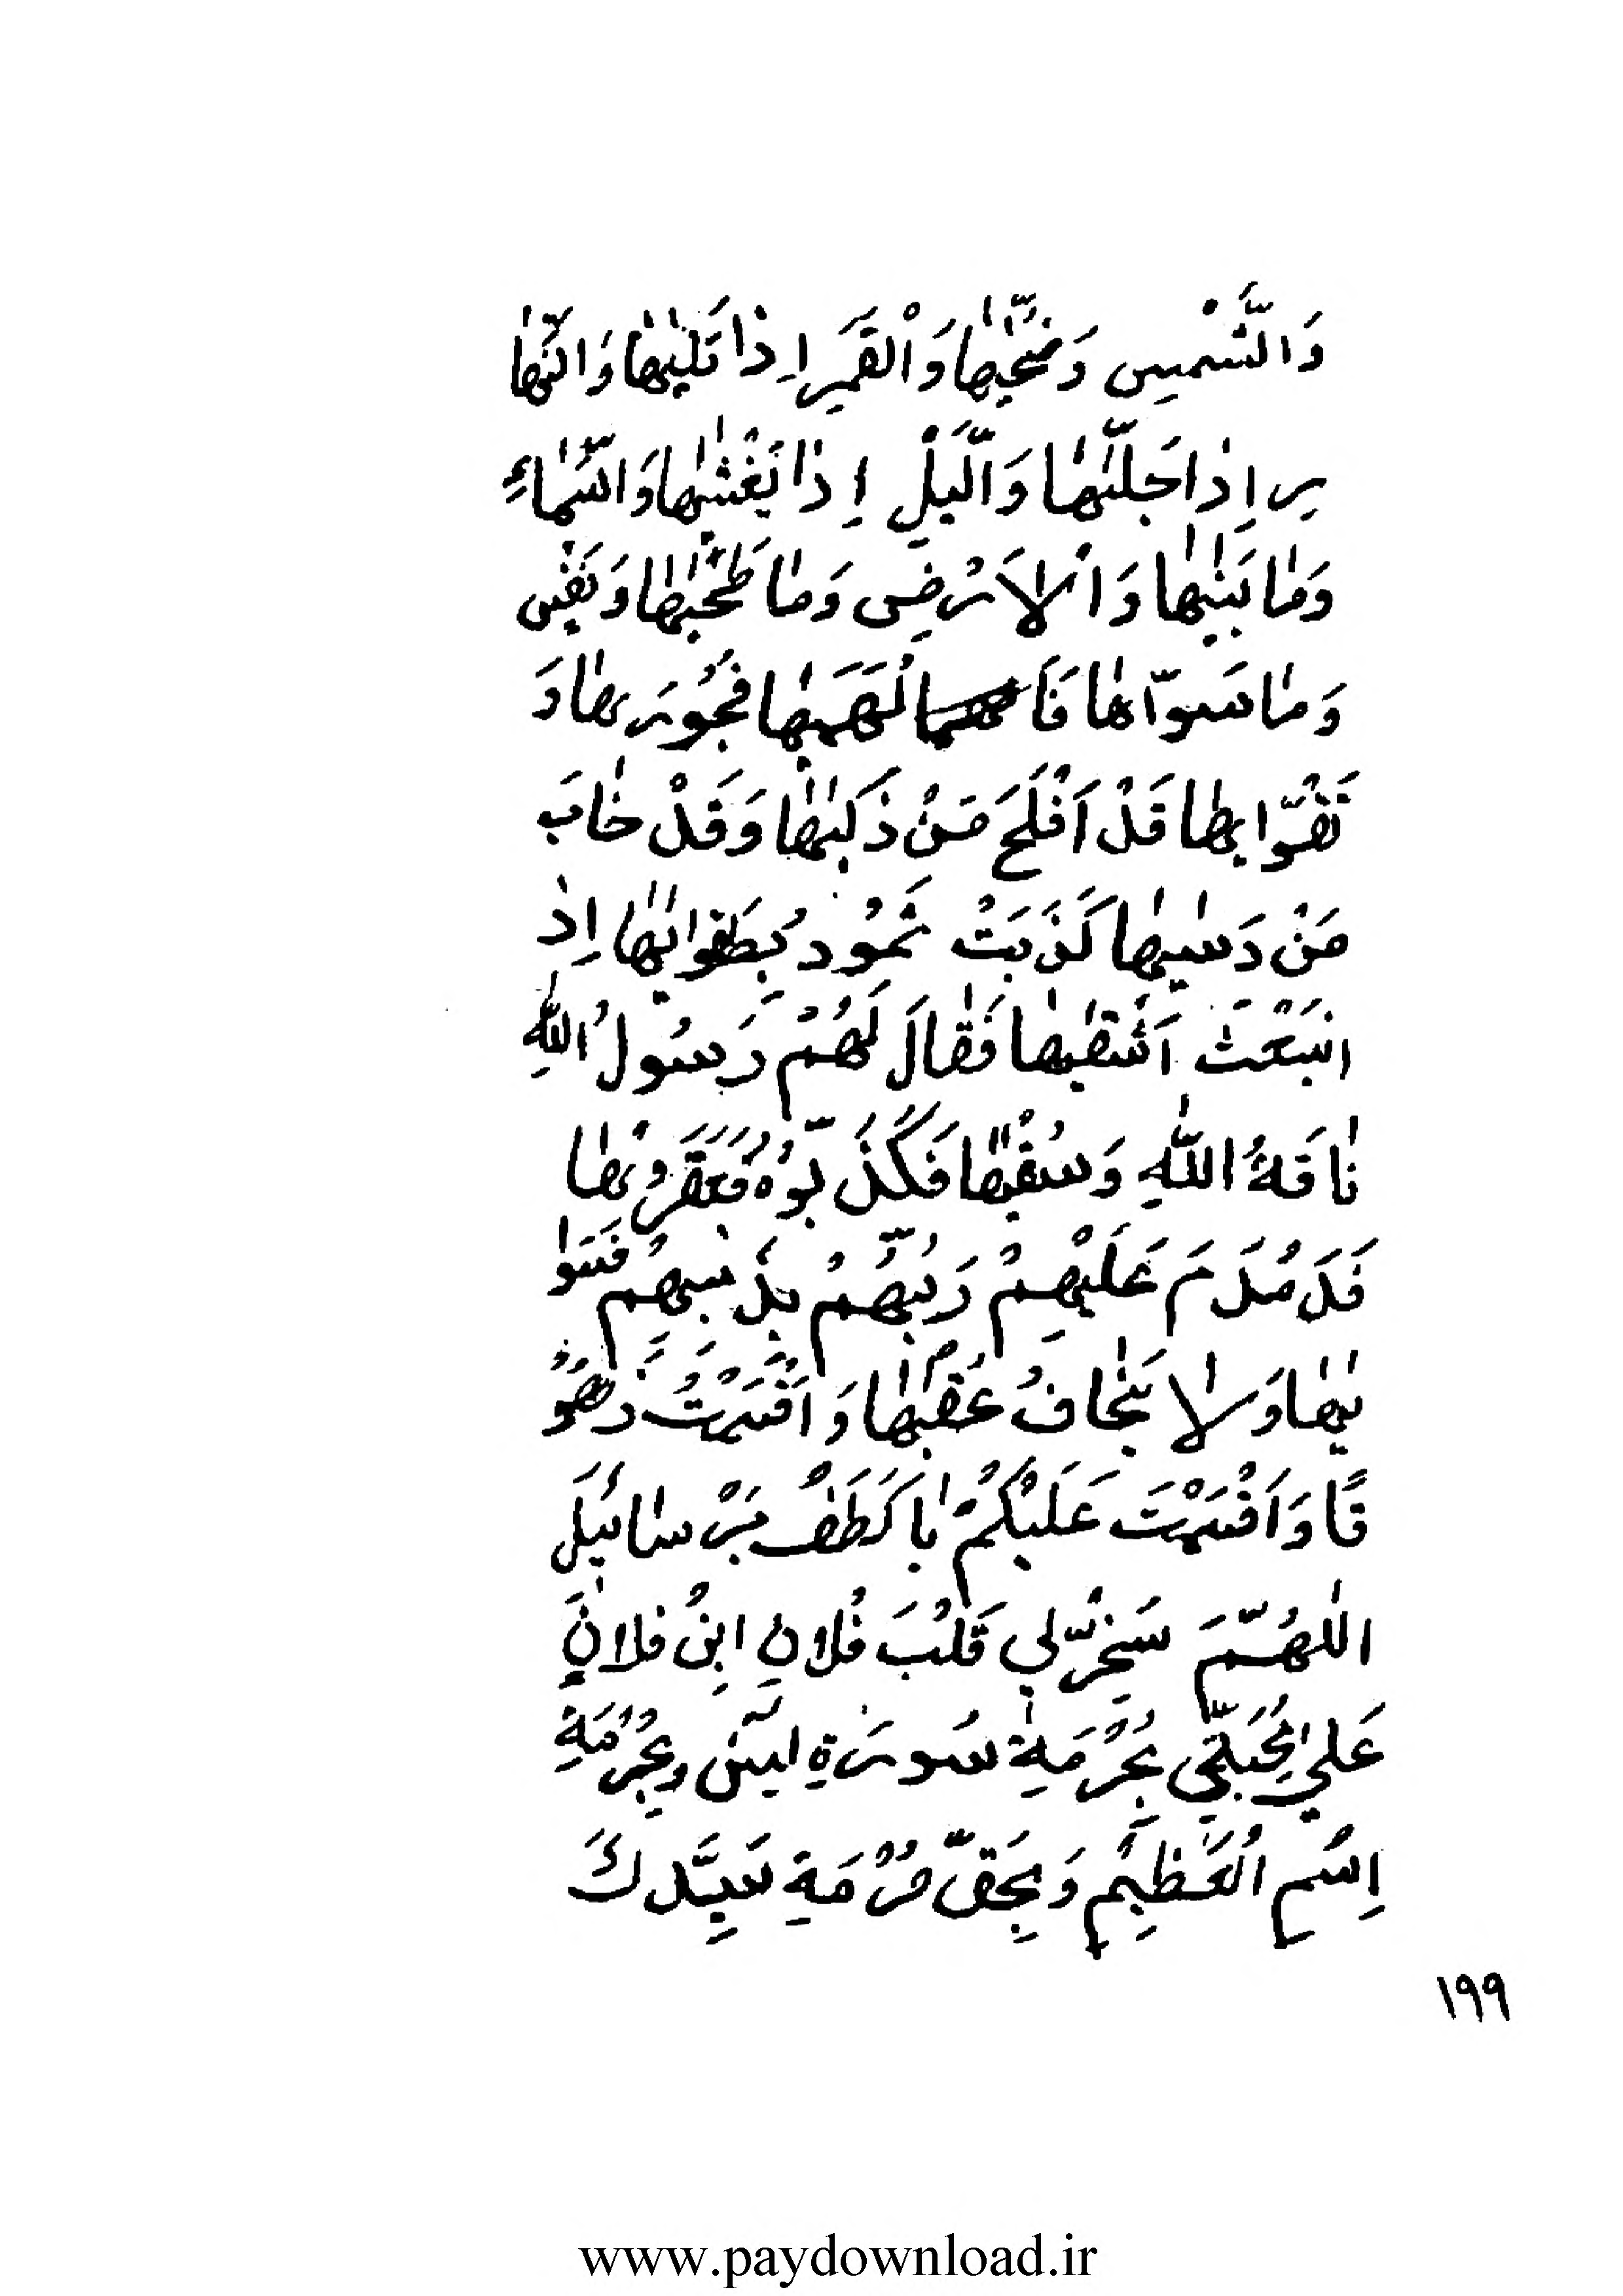 وَالشَّمْسِ وَضُحٰيهٰا وَالْقَمَرِ اِذٰا تَلٰيهٰا وَالنَّهٰا
رِ اِذٰا جَلّٰهٰا وَالَّيْلِ اِذٰا يَغْشٰيهٰا وَالسَّمٰاءِ
وَمٰا بَنٰيهٰا وَالْاَرْضِ وَمٰا طَحٰيهٰا وَنَفْسٍ
وَمٰا سَوّاهٰا فَاَلْهَمَهٰا فُجُورَهٰا وَ
تَقْوّايهٰا قَدْ اَفْلَحَ مَنْ ذَكٰيهٰا وَقَدْ خٰابَ
مَنْ دَسٰيهٰا كَذَبَتْ ثَمُود بِطَغْوايٰهٰا اِذِ
انبَعَثَ اَشْقٰيهٰا فَقٰالَ لَهُمْ رَسُولُ اللّٰهِ
نٰاقَةُ اللّٰهِ وَسُقْيٰهٰا فَكَذَبّوُهُ فَعَقَرُوهٰا
فَدَمُدَمَ عَلَيْهِمْ رَبُّهُمْ بِذَنبِهِم فَسَوٰا
يٰهٰا وَلٰا يَخٰافُ عُقْبٰهٰا وَاَقْسَمْتُ
قًا وَاَقْسَمْتَ عَلَيْكُمْ يٰا كَطَفُ بَرْسٰائيَلَ
اللٰهُمَّ سَخِّرْ لي قَلْبَ فُلانِ ابِنُ فلانٍ
عَليٰ مُحِبَّتي بِحُرْمَةِ سُورَةِ ليسٓ وبِحُرْمَةِ
اِسْمِ الْعَظِيْم وَبِحَقّ حُرْمَةِ سَيِّدكَ
١٩٩
www.paydownload.ir